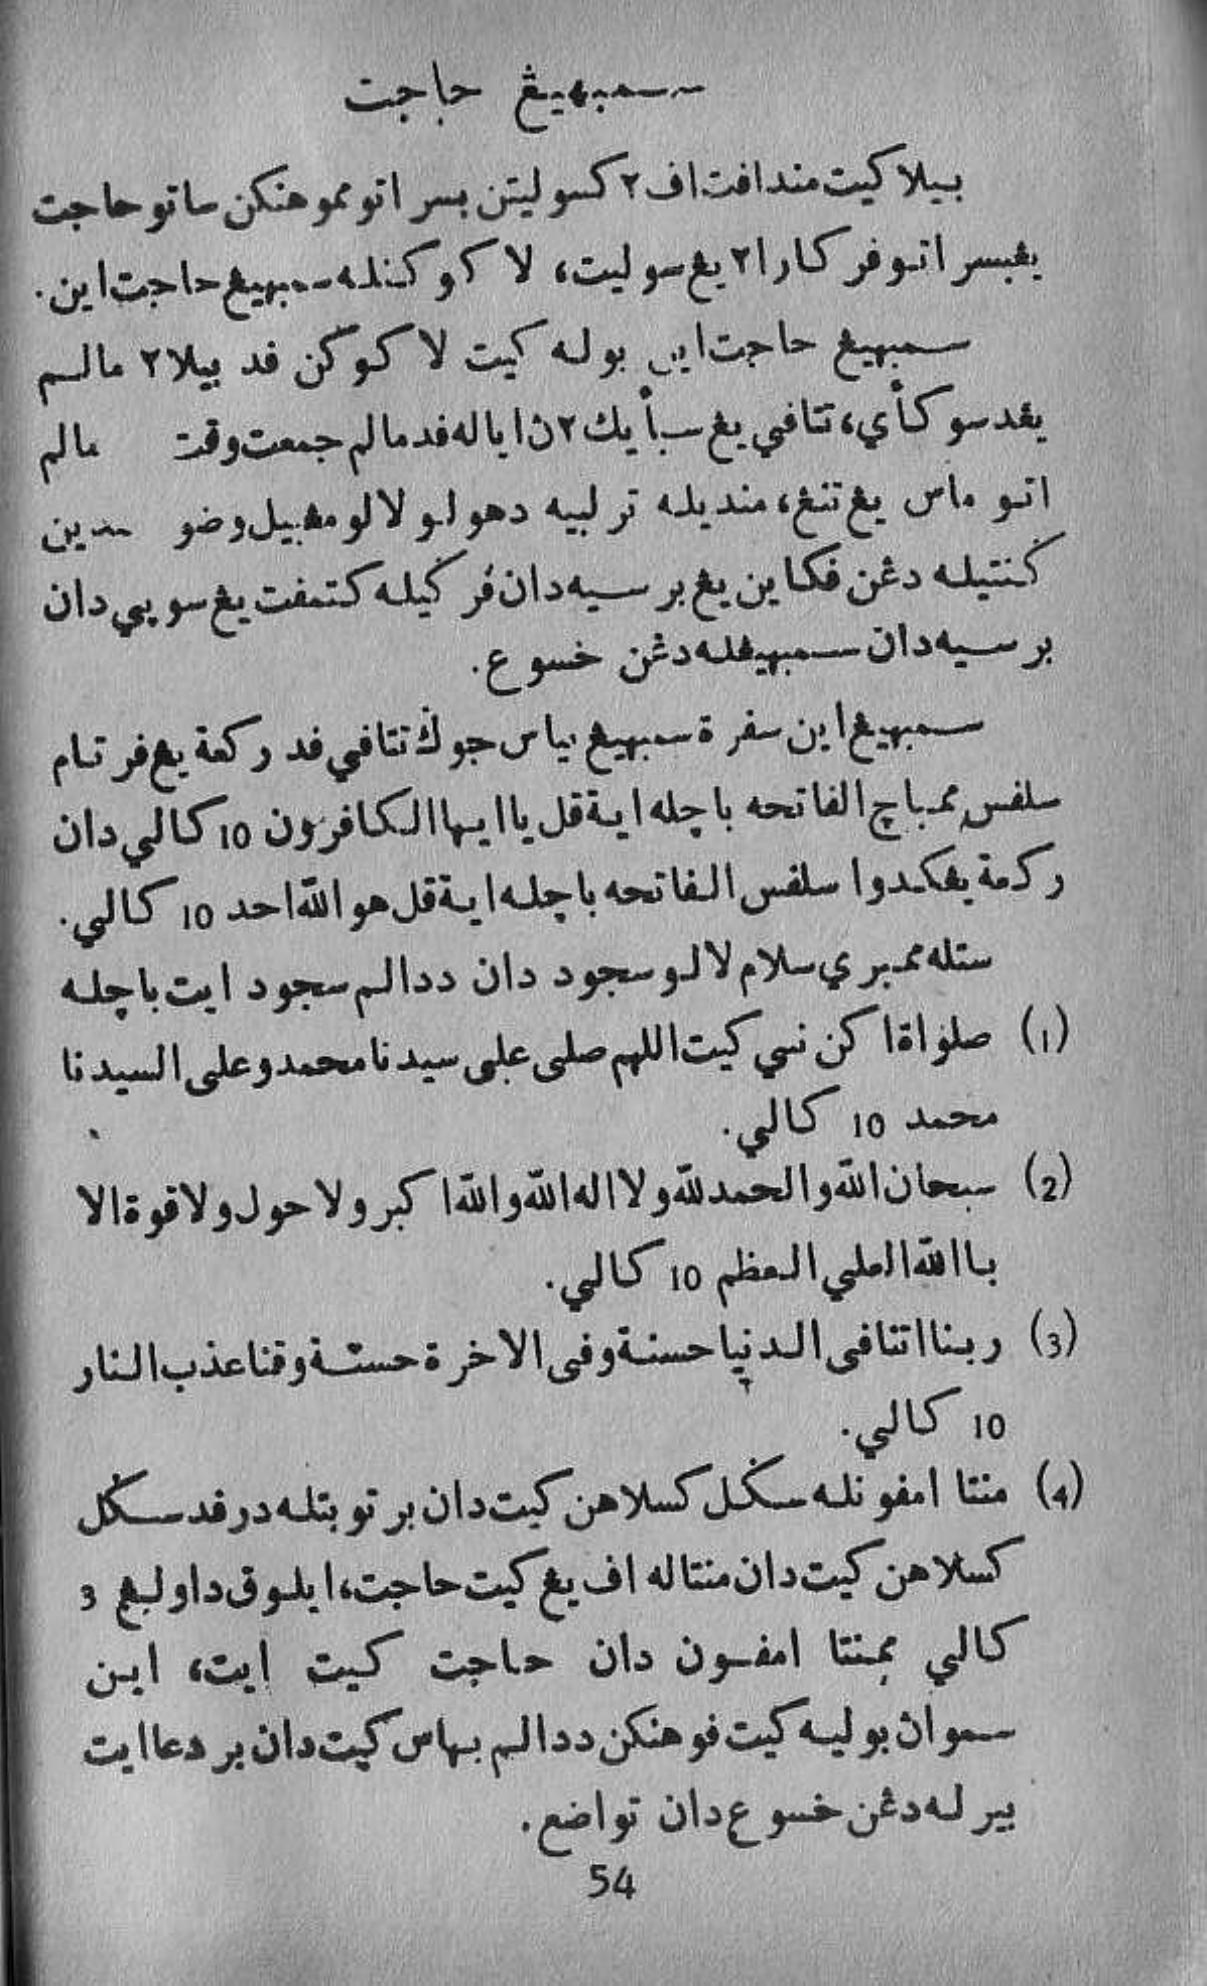 سمبهيڠ حاجت
بيلا كيت مندافت اف٢ كسوليتن بسر اتو مموهنكن ساتو حاجت
يڠبسر اتو فركارا٢ يڠ سوليت، لاكوكنله سمبهيڠ حاجت اين.
سمبهيڠ حاجت اين بوله كيت لاكوكن فد بيلا٢ مالم
يڠدسوكأي، تتافي يڠ سبأيك٢ن اياله فد مالم جمعت وقت مالم
اتو ماس يڠ تنڠ، منديله ترلبيه دهولو لالو مڠمبيل وضو
ڬنتيله دڠن فكاين يڠ برسيه دان فرڬيله كتمفت يڠ سوڽي دان
برسيه دان سمبهيڠله دڠن خسوع.
سمبهيڠ اين سفرة سمبهيڠ بياس جوڬ تتافي فد ركعة يڠ فرتام
سلفس ممباچ الفاتحه باچله اية قل يا ايها الكافرون 10 كالي دان
ركعة يڠكدوا سلفس الفاتحه باچله اية قل هو الله احد 10 كالي.
ستله ممبري سلام لالو سجود دان ددالم سجود ايت باچله
(1) صلواة اكن نبي كيت اللهم صلى على سيدنا محمد وعلى السيدنا
محمد 10 كالي.
(2) سبحان الله والحمد لله ولا اله الله والله اكبر ولا حول ولا قوة الا
باالله العلي العظم 10 كالي.
(3) ربنا اتنا فى الدنيا حسنة وفى الاخرة حسنة وقنا عذب النار
10 كالي.
(4) منتا امفونله سڬل كسلاهن كيت دان برتوبتله درفد سڬل
كسلاهن كيت دان منتاله اف يڠ كيت حاجت، ايلوق داولڠ 3
كالي ممنتا امفون دان حاجت كيت ايت، اين
سموان بوليه كيت فوهنكن ددالم بهاس كيت دان بردعا ايت
بيرله دڠن خسوع دان تواضع.
54